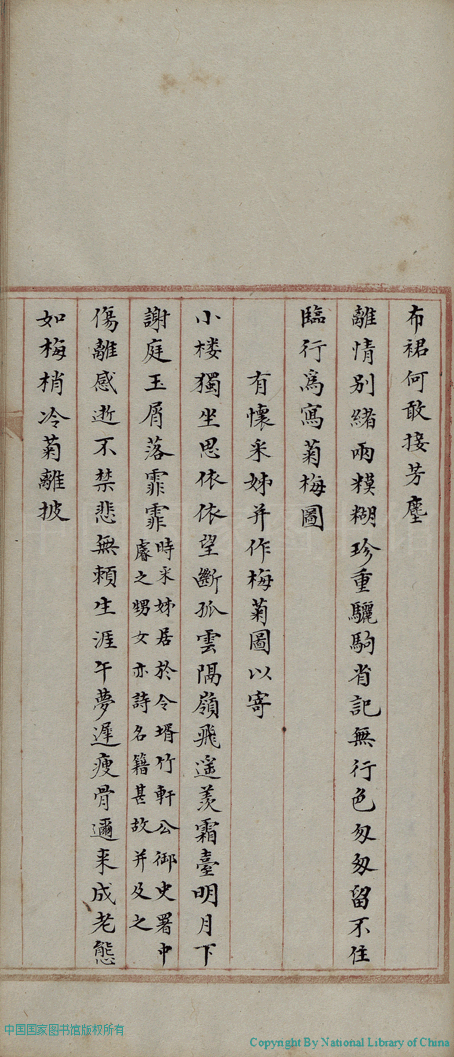 布裙何敢接芳塵
離情別緒兩糢糊珍重驪駒省記無行色匆匆留不住
臨行爲寫菊梅圖
有懷采姊并作梅菊圖以寄
小樓獨坐思依依望斷孤雲隔嶺飛遙羡霜臺明月下
謝庭玉屑落霏霏時采姊居於令壻竹軒公御史署中
睿之甥女亦詩名籍甚故并及之
傷離感逝不禁悲無賴生涯午夢遲瘦骨邇来成老態
如梅梢冷菊離披
中国国家图书馆版权所有
Copyright By National Library of China